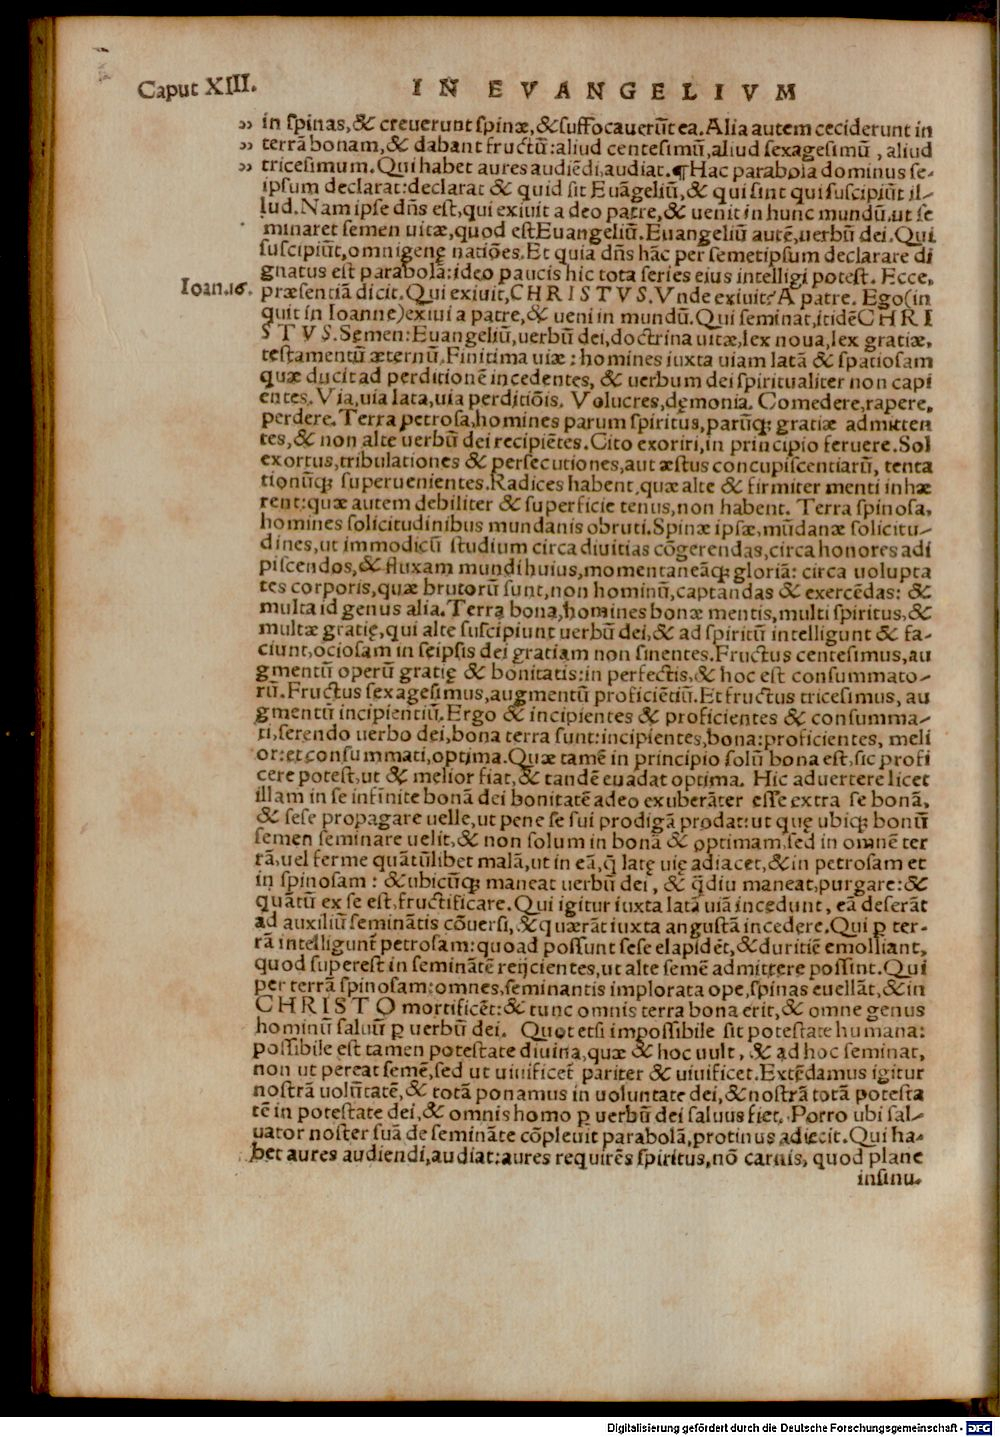 Caput XIII. IN EVANGELIVM
„ in spinas,& creuerunt spinæ, & suffocauerũt ea. Alia autem ceciderunt in
„ terrã bonam, & dabant fructũ: aliud centesimũ, aliud sexagesimũ , aliud
„ tricesimum. Qui habet aures audiẽdi, audiat. ¶ Hac parabola dominus se-
ipsum declarat: declarat & quid sit Euãgeliũ, & qui sint qui suscipiũt il-
lud. Nam ipse dñs est, qui exiuit a deo patre, & uenit in hunc mundũ, ut se
minaret semen uitæ, quod est Euangeliũ. Euangeliũ autẽ, uerbũ dei. Qui
suscipiũt, omnigenę natiões. Et quia dñs hãc per semetipsum declarare di
gnatus est parabolã: ideo paucis hic tota series eius intelligi potest. Ecce,
Ioan.16. præsentiã dicit. Qui exiuit, CHRISTVS. Vnde exiuit? A patre. Ego (in
quit in Ioanne) exiui a patre, & ueni in mundũ. Qui seminat, itidẽ CHRI
STVS. Semen: Euangeliũ, uerbũ dei, doctrina uitæ, lex noua, lex gratiæ,
testamentũ æternũ. Finitima uiæ : homines iuxta uiam latã & spatiosam
quæ ducit ad perditionẽ incedentes, & uerbum dei spiritualiter non capi
entes. Via, uia lata, uia perditiõis. Volucres, dęmonia. Comedere, rapere,
perdere. Terra petrosa, homines parum spiritus, parũq; gratiæ admitten
tes, & non alte uerbũ dei recipiẽtes. Cito exoriri, in principio feruere. Sol
exortus, tribulationes & persecutiones, aut æstus concupiscentiarũ, tenta
tionũq; superuenientes. Radices habent, quæ alte & firmiter menti inhæ
rent: quæ autem debiliter & superficie tenus, non habent. Terra spinosa,
homines solicitudinibus mundanis obruti. Spinæ ipsæ, mũdanæ solicitu-
dines, ut immodicũ studium circa diuitias cõgerendas, circa honores adi
piscendos, & fluxam mundi huius, momentaneãq; gloriã: circa uolupta
tes corporis, quæ brutorũ sunt, non hominũ, captandas & exercẽdas: &
multa id genus alia. Terra bona, homines bonæ mentis, multi spiritus, &
multæ gratię, qui alte suscipiunt uerbũ dei, & ad spiritũ intelligunt & fa-
ciunt, ociosam in seipsis dei gratiam non sinentes. Fructus centesimus, au
gmentũ operũ gratię & bonitatis: in perfectis, & hoc est consummato-
rũ. Fructus sexagesimus, augmentũ proficiẽtiũ. Et fructus tricesimus, au
gmentũ incipientiũ. Ergo & incipientes & proficientes & consumma-
ti, serendo uerbo dei, bona terra sunt: incipientes, bona: proficientes, meli
or: et consummati, optima. Quæ tamẽ in principio solũ bona est, sic profi
cere potest, ut & melior fiat, & tandẽ euadat optima. Hic aduertere licet
illam in se infinite bonã dei bonitatẽ adeo exuberãter esse extra se bonã,
& sese propagare uelle, ut pene se sui prodigã prodat: ut quę ubiq; bonũ
semen seminare uelit, & non solum in bonã & optimam, sed in omnẽ ter
rã, uel ferme quãtũlibet malã, ut in eã, q̃ latę uię adiacet, & in petrosam et
in spinosam : & ubicũq; maneat uerbũ dei , & q̃diu maneat, purgare: &
quãtũ ex se est, fructificare. Qui igitur iuxta latã uiã incedunt, eã deserãt
ad auxiliũ seminãtis cõuersi, & quærãt iuxta angustã incedere. Qui ꝑ ter-
rã intelligunt petrosam: quoad possunt sese elapidẽt, & duritiẽ emolliant,
quod superest in seminãtẽ reijcientes, ut alte semẽ admittere possint. Qui
per terrã spinosam: omnes, seminantis implorata ope, spinas euellãt, & in
CHRISTO mortificẽt: & tunc omnis terra bona erit, & omne genus
hominũ saluũ ꝑ uerbũ dei. Quot etsi impossibile sit potestate humana:
possibile est tamen potestate diuina, quæ & hoc uult, & ad hoc seminat,
non ut pereat semẽ, sed ut uiuificet pariter & uiuificet. Extẽdamus igitur
nostrã uolũtatẽ, & totã ponamus in uoluntate dei, & nostrã totã potesta
tẽ in potestate dei, & omnis homo ꝑ uerbũ dei saluus fiet. Porro ubi sal-
uator noster suã de seminãte cõpleuit parabolã, protinus adiecit. Qui ha-
bet aures audiendi, audiat: aures requirẽs spiritus, nõ carnis, quod plane
insinu-
Digitalisierung gefördert durch die Deutsche Forschungsgemeinschaft - DFG